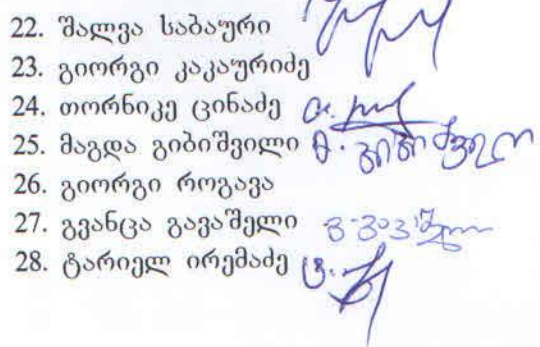 22. შალვა საბაური
23. გიორგი კაკაურიძე
24. თორნიკე ცინაძე
25. მაგდა გიბიშვილი მ. გიბიშვილი
26. გიორგი როგავა
27. გვანცა გავაშელი გ. გავაშელი
28. ტარიელ ირემაძე